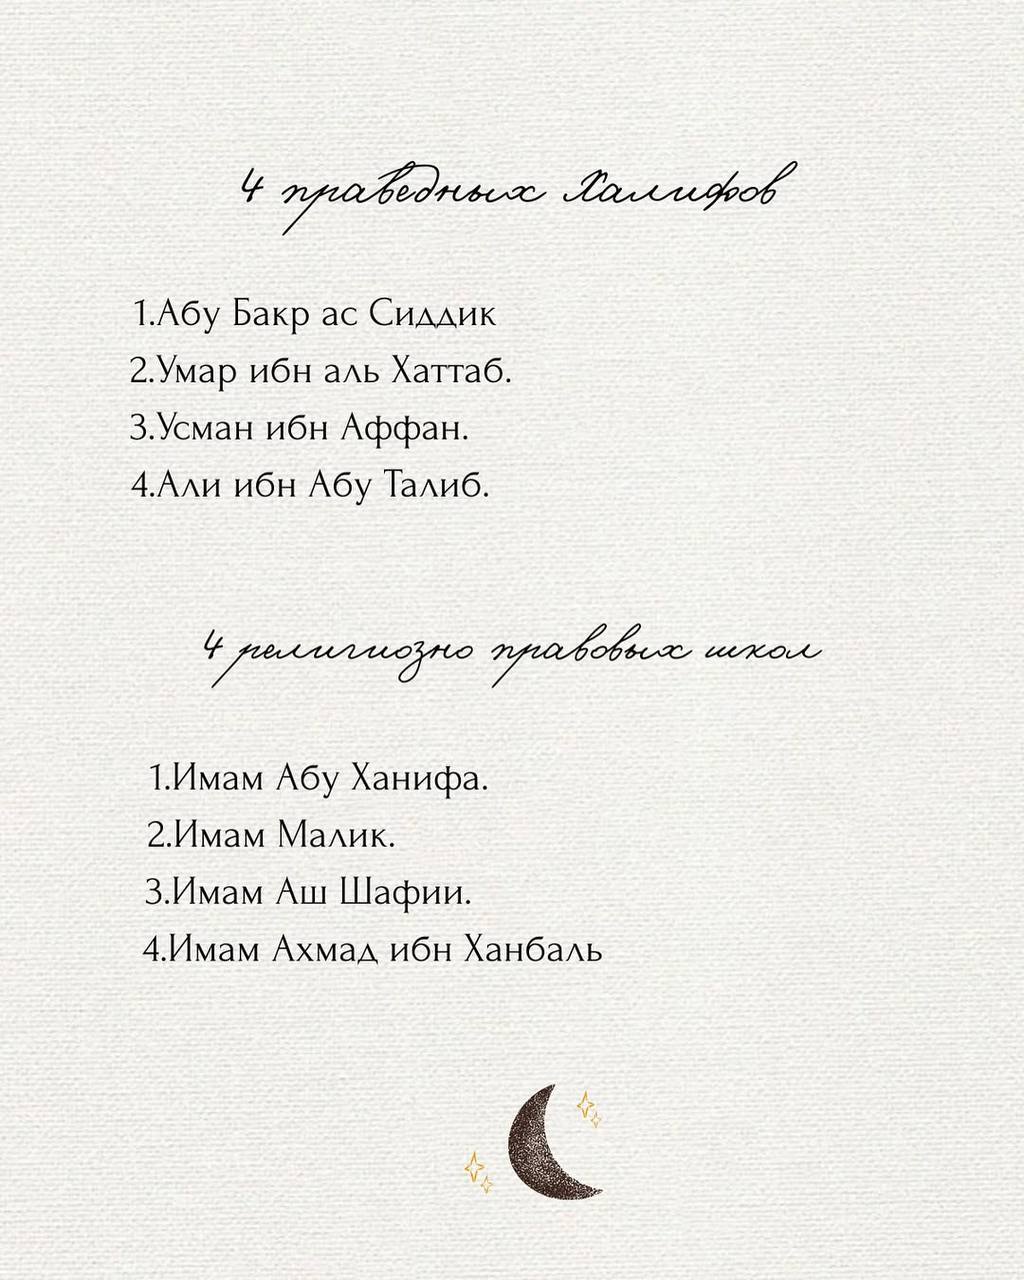 4 праведных Халифов
1.Абу Бакр ас Сиддик
2.Умар ибн аль Хаттаб.
3.Усман ибн Аффан.
4.Али ибн Абу Талиб.
4 религиозно правовых школ
1.Имам Абу Ханифа.
2.Имам Малик.
3.Имам Аш Шафии.
4.Имам Ахмад ибн Ханбаль